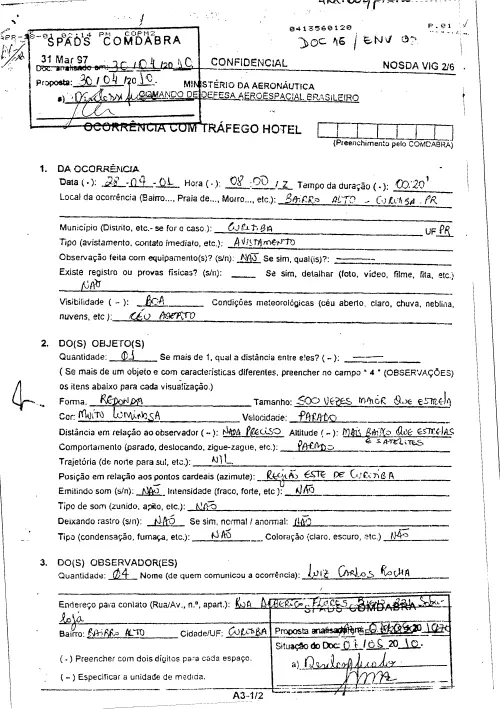 02:14 PM COPM2
0413560120 P.01
DOC 16 / ENV 02
SPADS COMDABRA
31 Mar 97 CONFIDENCIAL NOSDA VIG 2/6
Doc. analisado em 30/04/2010
Proposta: 30/04/2010
MINISTÉRIO DA AERONÁUTICA
a)
COMANDO DE DEFESA AEROESPACIAL BRASILEIRO
OCORRÊNCIA COM TRÁFEGO HOTEL
(Preenchimento pelo COMDABRA)
1. DA OCORRÊNCIA
Data (·): 28-07-01 Hora (·): 08:00/Z Tempo da duração (·): 00:20'
Local da ocorrência (Bairro..., Praia de..., Morro..., etc.): BAIRRO ALTO - CURITIBA. PR
Município (Distrito, etc.- se for o caso): CURITIBA UF PR
Tipo (avistamento, contato imediato, etc.): AVISTAMENTO
Observação feita com equipamento(s)? (s/n): NÃO Se sim, qual(is)?:
Existe registro ou provas físicas? (s/n): Se sim, detalhar (foto, vídeo, filme, fita, etc.)
NÃO
Visibilidade ( ~ ): BOA Condições meteorológicas (céu aberto, claro, chuva, neblina,
nuvens, etc): CÉU ABERTO
2. DO(S) OBJETO(S)
Quantidade: 01 Se mais de 1, qual a distância entre eles? ( ~ ):
( Se mais de um objeto e com características diferentes, preencher no campo " 4 " (OBSERVAÇÕES)
os itens abaixo para cada visualização.)
Forma: REDONDA Tamanho: 500 VEZES MAIOR QUE ESTRELA
Cor: MUITO LUMINOSA Velocidade: PARADO
Distância em relação ao observador ( ~ ): NADA PRECISO Altitude ( ~ ): MAIS BAIXO QUE ESTRELAS
E SATÉLITES
Comportamento (parado, deslocando, zigue-zague, etc.): PARADO
Trajetória (de norte para sul, etc.): NIL
Posição em relação aos pontos cardeais (azimute): REGIÃO ESTE DE CURITIBA
Emitindo som (s/n): NÃO Intensidade (fraco, forte, etc): NÃO
Tipo de som (zunido, apito, etc.): NÃO
Deixando rastro (s/n): NÃO Se sim, normal / anormal: NÃO
Tipo (condensação, fumaça, etc.): NÃO Coloração (claro, escuro, etc.) NÃO
3. DO(S) OBSERVADOR(ES)
Quantidade: 04 Nome (de quem comunicou a ocorrência): LUIZ CARLOS ROCHA
Endereço para contato (Rua/Av., n.º, apart.): RUA FLORES
SPADS COMDABRA
Loja
Bairro: BAIRRO ALTO Cidade/UF: CURITIBA Proposta analisada
Situação do Doc: 07/05/2010.
( · ) Preencher com dois dígitos para cada espaço. a) Desclassificado
( ~ ) Especificar a unidade de medida.
A3-1/2